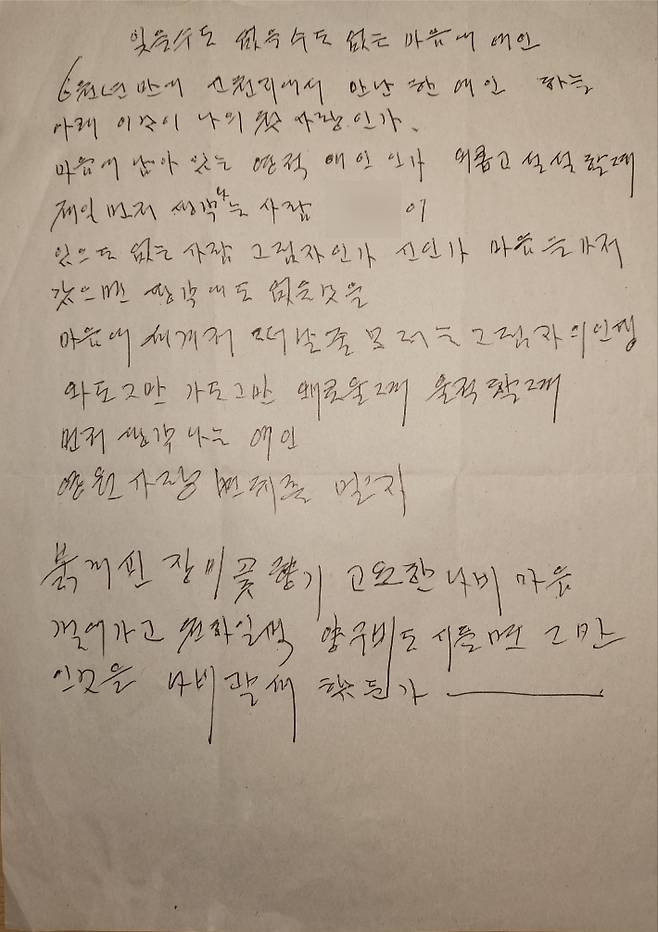 잊을수도 없을수도 없는 마음에 애인
6월년만에 신원리에서 만난 한 애인 하늘
아래 이것이 나의 첫사랑인가.
마음에 남아 있는 애인인가 외롭고 쓸쓸할때
제일 먼저 생각나는 사람 이
있으도 없는 사람 그림자인가 신인가 마음을가저
갔으면 생각에도 없을것을
마음에 세계저 떠날줄 모러는 그림자의인생
와도그만 가도그만 왜로울때 울적할때
먼저 생각나는 애인
영원 사랑
붉게핀 장미꽃 향기 고요한 나비 마음
걸어가고 천하일색 양구비도 시들면 그만
인것을 나비 했든가